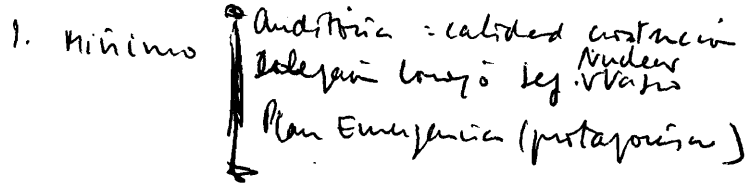 1. Mínimo
Auditoria = calidad construcción
Delegación Consejo Seg. Nuclear Vasco
Plan Emergencia (protagonismo)